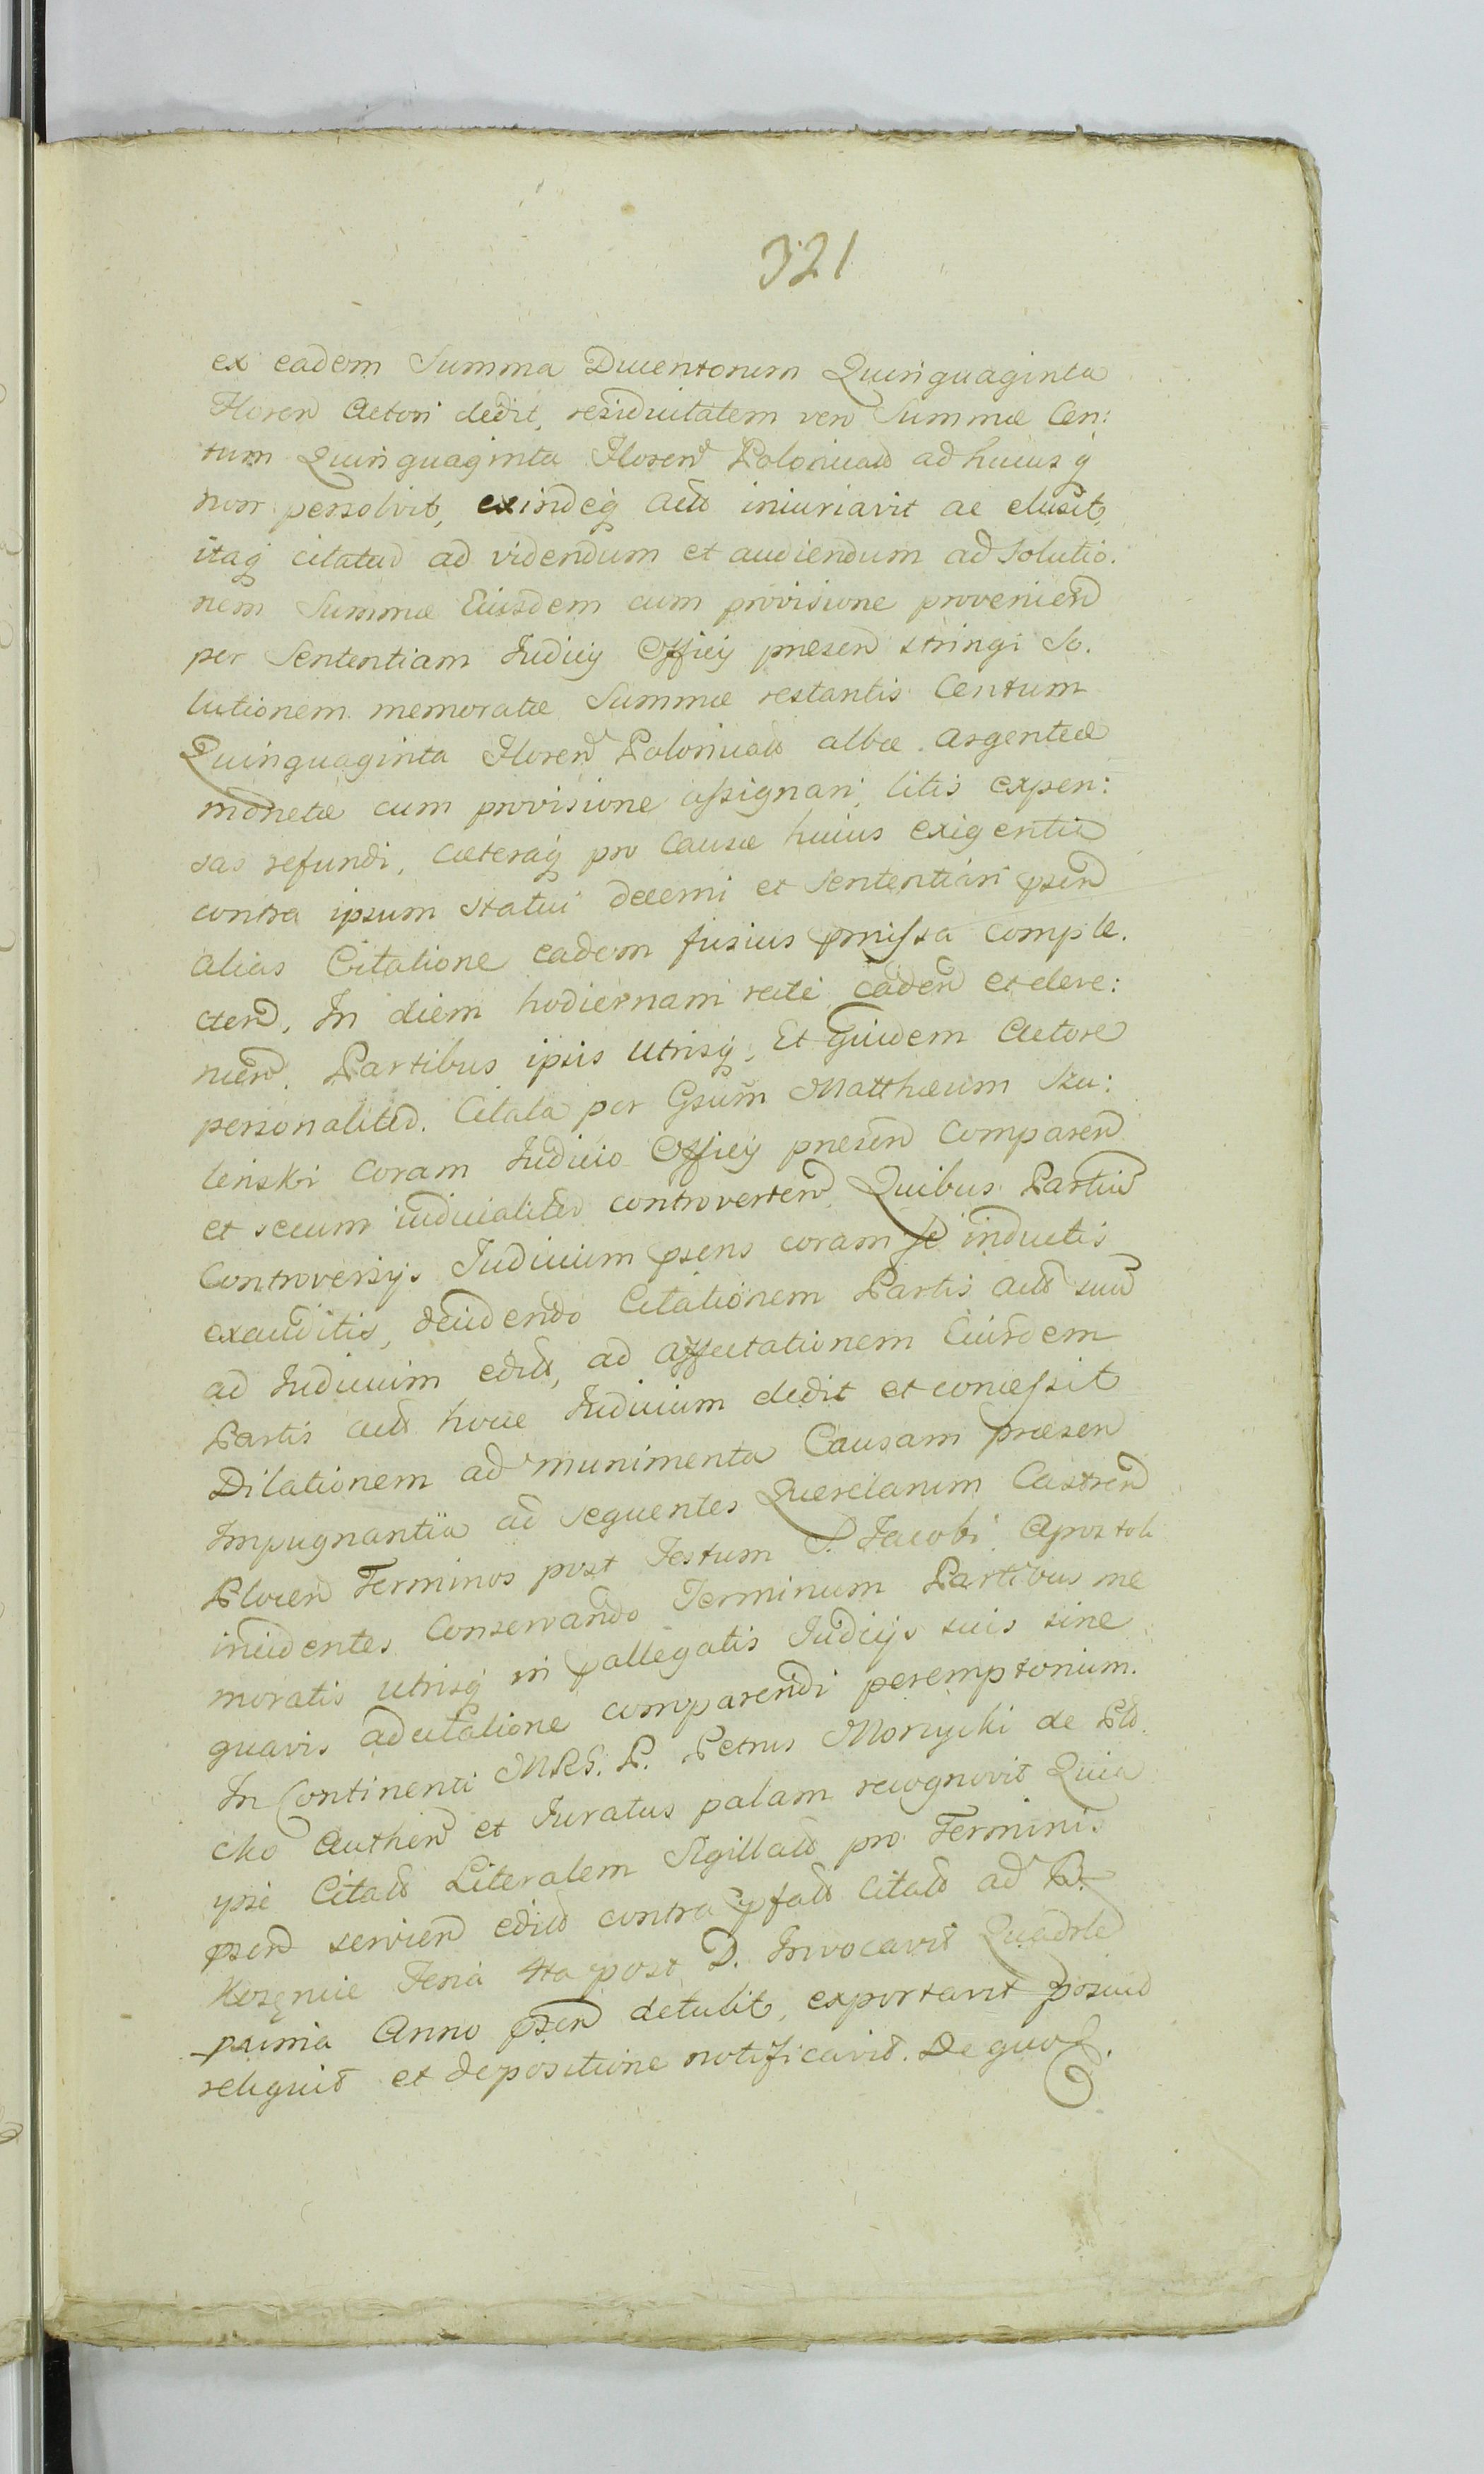 321
ex eadem Summa Ducentorum Quinquaginta
Floren Actori dedit, residuitatem vero Summæ Cen:
tum Quinquaginta Floren Polonical adhucusq
non persolvit, exindeq Act iniuriavit ac elusit,
itaq citatus ad videndum et audiendum ad Solutio.
nem Summæ Eiusdem cum provisione provenien
per Sententiam Judicij Officij præsen stringi So.
lutionem memoratæ Summæ restantis Centum
Quinquaginta Floren Polonical albæ argenteæ
monetæ cum provisione assignari, litis expen:
sas refundi, cæteraq pro Causæ huius exigentia
contra ipsum statui decerni et Sententiari psen
alias Citatione eadem fusius pmissa comple.
cten. In diem hodiernam recte caden et deve:
nien. Partibus ipsis utrisq, Et quidem Actore
personaliter. Citata per Gsum Matthæum Szu:
leński Coram Judicio Officij præsen Comparen
et secum iudicialiter controverten. Quibus Partium
Controversijs Judicium psens coram se inductis
exauditis, decidendo Citationem Partis act suam
ad Judicium edit, ad affectationem Eiusdem
Partis act hocce Judicium dedit et concessit
Dilationem ad munimenta Causam præsen
Impugnantia ad sequentes Querelarum Castren
Plocen Terminos post Festum S. Jacobi Apostoli
incidentes Conservando Terminum Partibus me
moratis utrisq in pallegatis Judicijs suis sine
quavis adcitatione comparendi peremptorium.
In Continenti MRS. P. Petrus Morzycki de Pło.
cko Authen et Juratus palam recognovit Quia
ipse Citat Literalem Sigillat pro Terminis
psen servien edit contra pfat Citat ad B.
Feria 4ta post D. Invocavit Quadrle
pximia Anno psen detulit, exportavit posuit
reliquit et depositione notificavit. De quo &.